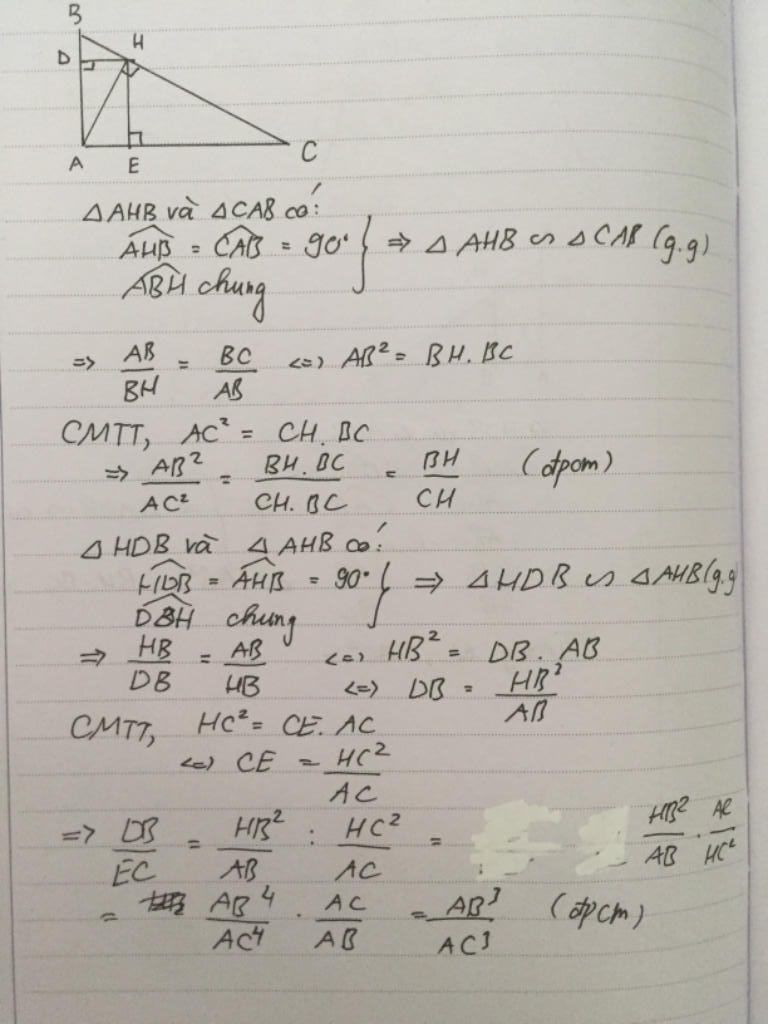 B
D H
A E C
△AHB và △CAB có:
AHB = CAB = 90° } ⇒ △AHB ∽ △CAB (g.g)
ABH chung
⇒ AB/BH = BC/AB ⇔ AB² = BH.BC
CMTT, AC² = CH.BC
⇒ AB²/AC² = BH.BC/CH.BC = BH/CH (đpcm)
△HDB và △AHB có:
HDB = AHB = 90° } ⇒ △HDB ∽ △AHB (g.g
DBH chung
⇒ HB/DB = AB/HB ⇔ HB² = DB.AB
⇔ DB = HB²/AB
CMTT, HC² = CE.AC
⇔ CE = HC²/AC
⇒ DB/EC = HB²/AB : HC²/AC = HB²/AB . AC/HC²
= AB⁴/AC⁴ . AC/AB = AB³/AC³ (đpcm)